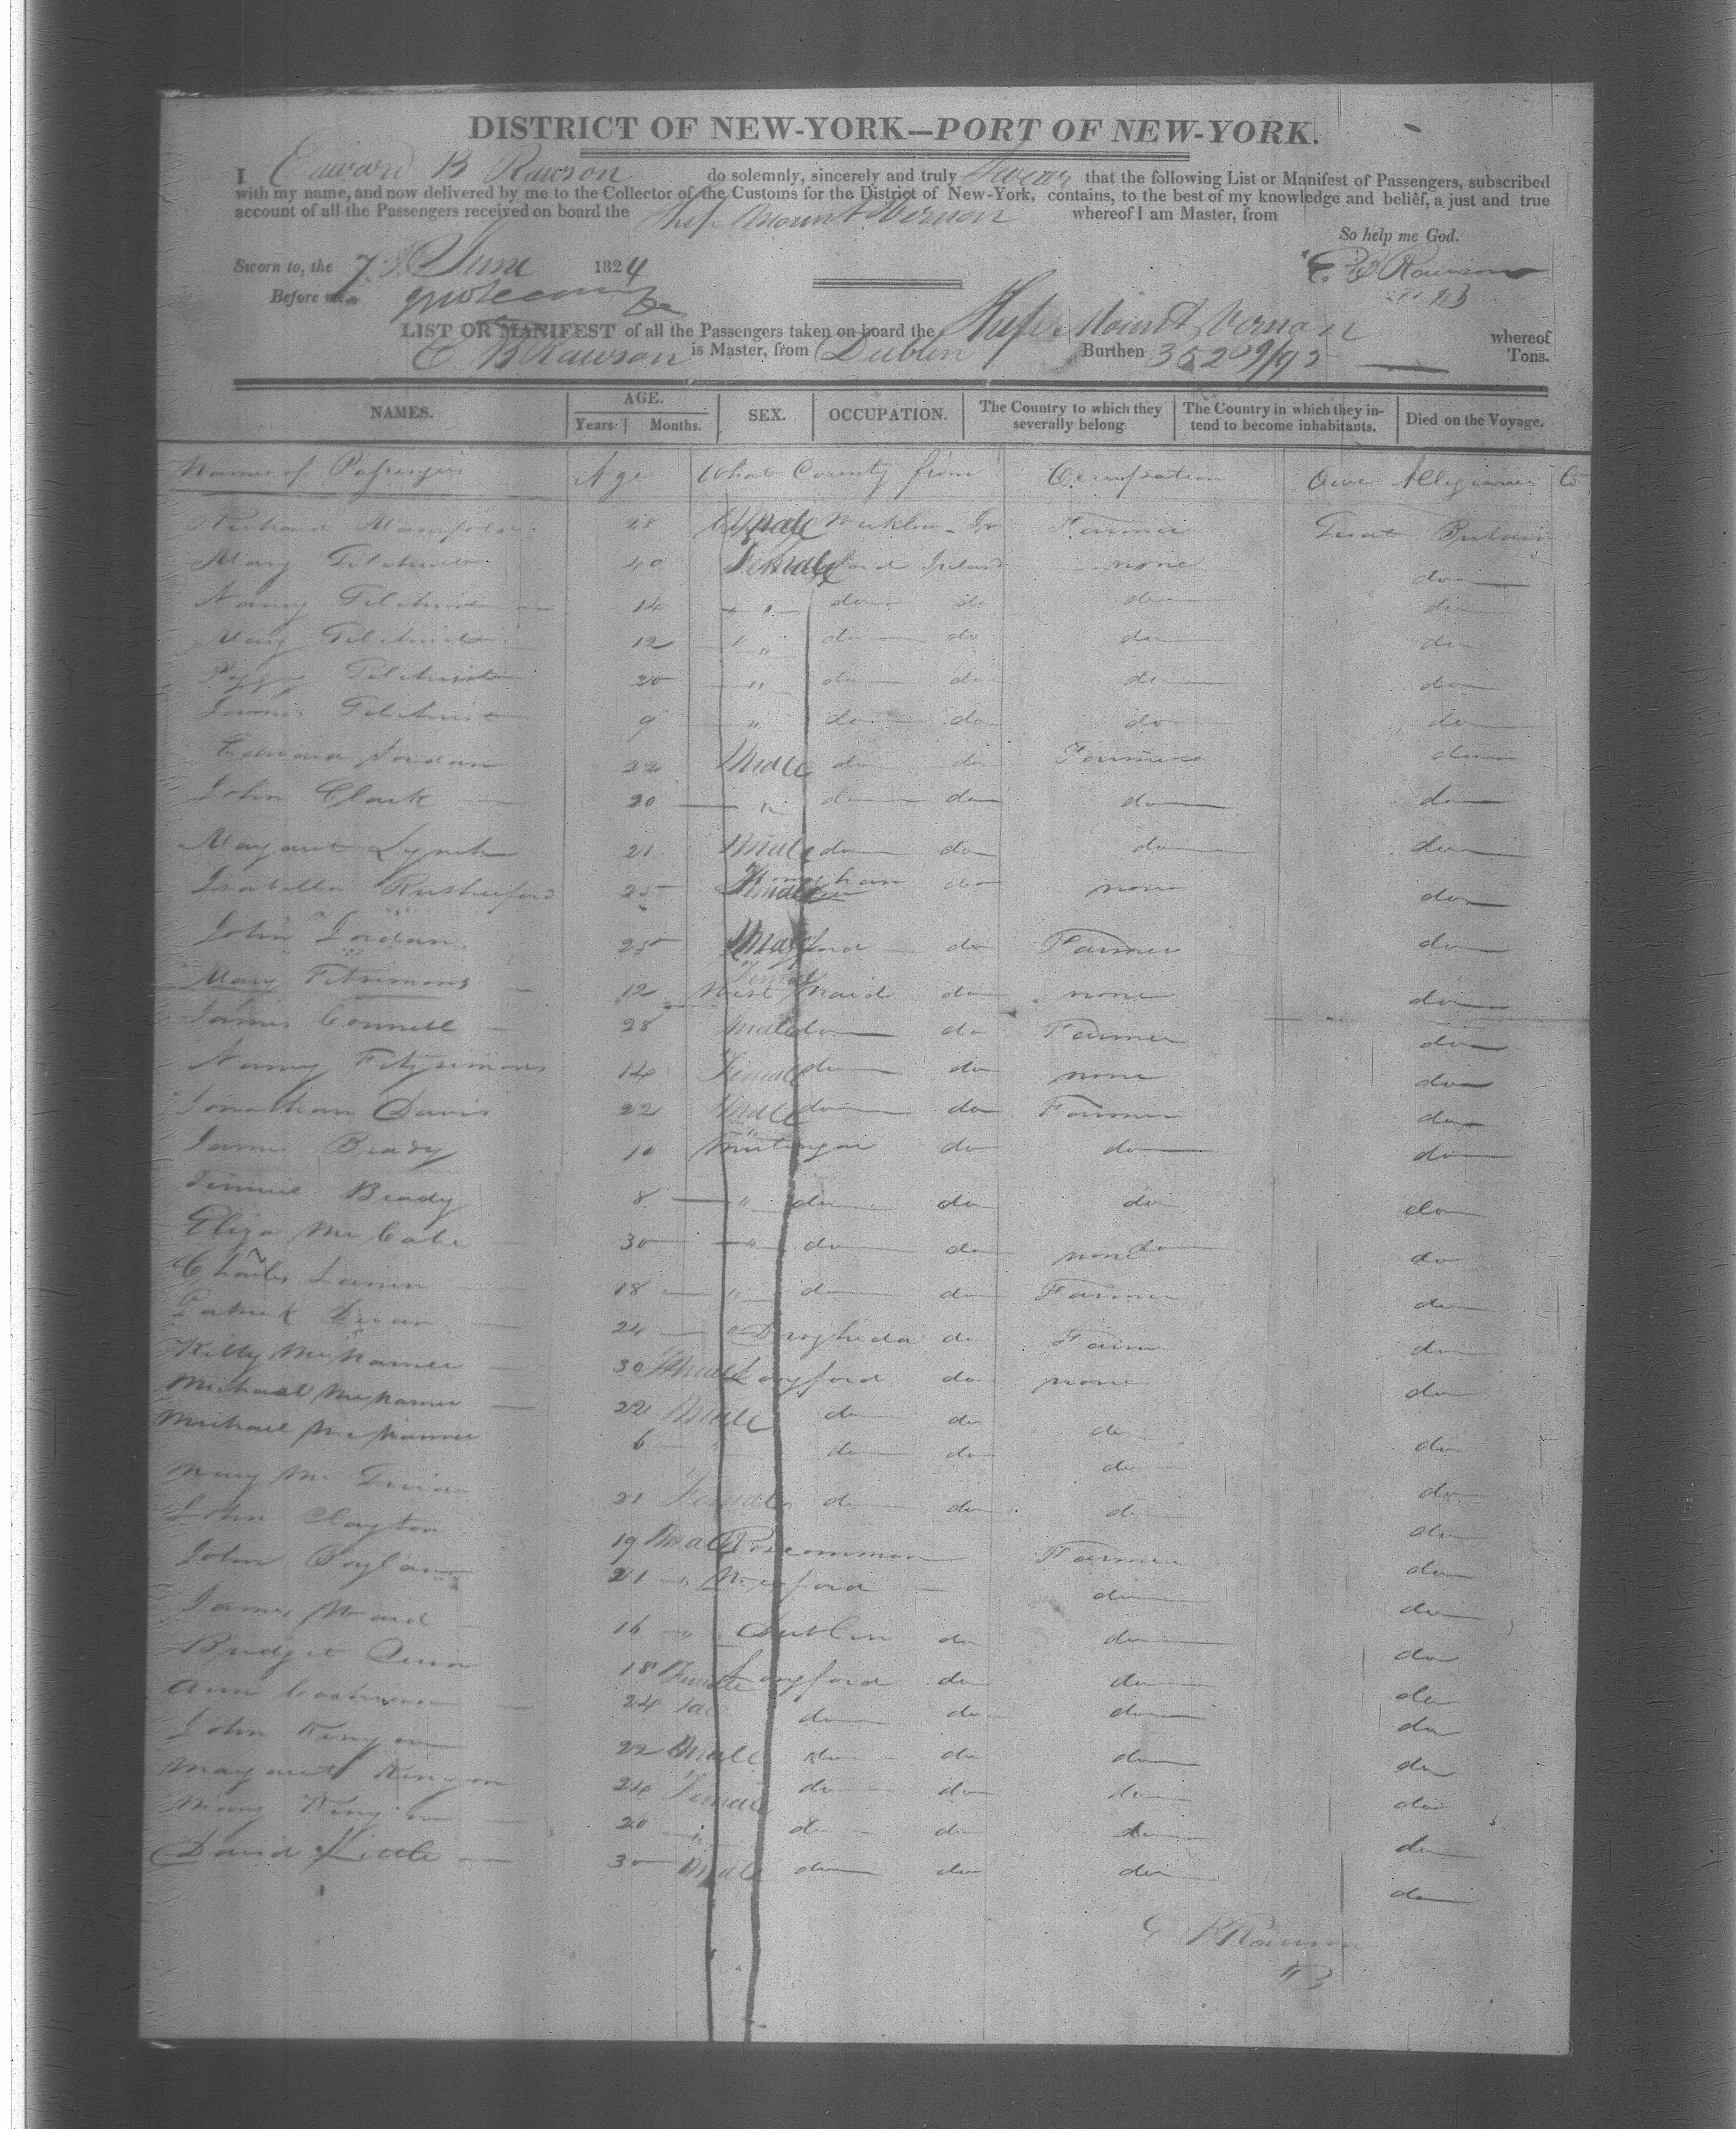 DISTRICT OF NEW-YORK—PORT OF NEW-YORK.
I Edward B Rawson do solemnly, sincerely and truly Swear that the following List or Manifest of Passengers, subscribed
with my name, and now delivered by me to the Collector of the Customs for the District of New-York, contains, to the best of my knowledge and belief, a just and true
account of all the Passengers received on board the Ship Mount Vernon whereof I am Master, from
So help me God.
Sworn to, the 7 June 1824 E B Rawson
Before me,
LIST OR MANIFEST of all the Passengers taken on board the Ship Mount Vernon whereof
E B Rawson is Master, from Dublin Burthen 352 Tons.
NAMES. AGE. SEX. OCCUPATION. The Country to which they severally belong The Country in which they intend to become inhabitants. Died on the Voyage.
Years Months.
Names of Passengers Age What County from Occupation Owe Allegiance to
Richard Manifold 28 Male Wicklow Farmer Great Britain
Mary Gilchrist 40 Female Ireland none do
Nancy Gilchrist 14 " do do do do
Mary Gilchrist 12 " do do do do
Peggy Gilchrist 20 " do do do do
James Gilchrist 9 " do do do do
Edward Jordan 22 Male do do Farmer do
John Clark 20 " do do do do
Margaret Lynch 21 Male do do do do
Isabella Rutherford 25 do none do
John Jordan 25 Male do Farmer do
Mary Fitsimons 12 West Maid do none do
James Connell 28 Male do do Farmer do
Nancy Fitzsimons 14 Female do do none do
Jonathan Davis 22 Male do do Farmer do
James Brady 10 " do do do
Brady 8 " do do do do
Eliza McCabe 30 " do do none do
Charles 18 " do do Farmer do
Patrick 24 " Drogheda do Farm do
Kitty McNamee 30 Female Longford do none do
Michael McNamee 22 Male do do do do
Michael McNamee 6 " do do do do
Mary Mc 21 Female do do do do
John Clayton 19 Male Roscommon Farmer do
John Boylan 21 " Wexford do do
James Ward 16 " Dublin do do do
Bridget Quin 18 Female Longford do do do
Ann 24 do do do do
John Kenyon 22 Male do do do do
Margaret Kenyon 24 Female do do do do
Mary Kenyon 20 " do do do do
David Little 30 Male do do do do
E B Rawson